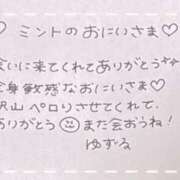 ♡ミントのおにいさま♡
会いに来てくれてありがとう
全身敏感なおにいさま♡
沢山ペロりさせてくれて、
ありがとう☺また会おうね!
ゆずる